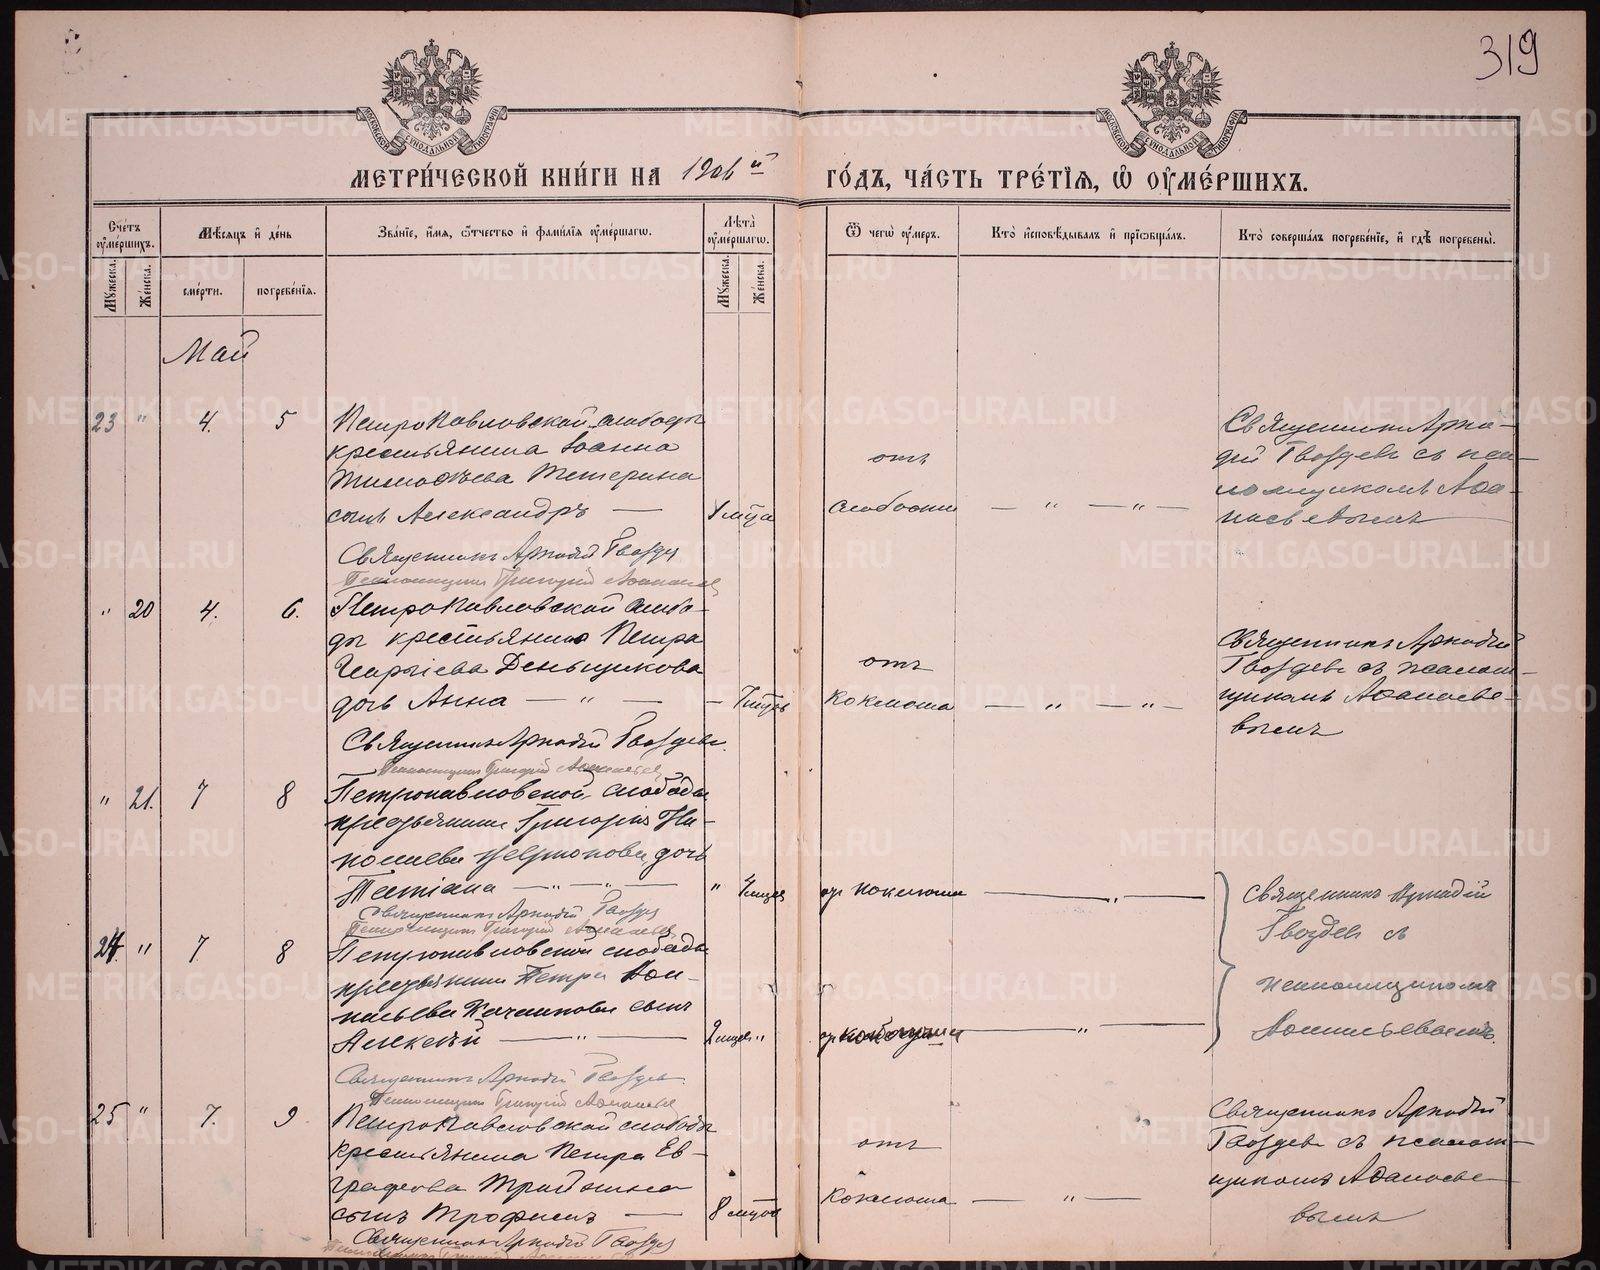 319
МЕТРИ́ЧЕСКОЙ КНИ́ГИ НА 1906 й ГО́ДЪ, ЧА́СТЬ ТРЕ́ТІѦ, Ѡ ОУМЕ́РШИХЪ.
Сче́тъ оуме́ршихъ.
Мѣ́сяцъ и де́нь
Зва́ніе, и́мя, ѻ́тчество и фами́лія оуме́ршагѡ.
Лѣта̀ оуме́ршагѡ.
Ѿ чегѡ̀ оу́меръ.
Кто̀ и҆сповѣ́дывалъ и҆ прїѡбща́лъ.
Кто̀ соверша́лъ погребе́ніе, и҆ гдѣ̀ погребены̀.
Му́жеска.
Же́нска.
сме́рти.
погребе́нїя.
Му́жеска.
Же́нска.
Май
23 " 4. 5 Петропавловской слободы
крестьянина Іоанна
Тимофѣева Тетерина
сынъ Александръ — 1 мца
отъ
слабости — " — " —
Священникъ Арка-
дій Гвоздевъ съ пса-
ломщикомъ Афа-
насьевымъ
Священникъ Аркадій Гвоздев
Псаломщикъ Григорій Афанасьев
" 20 4. 6. Петропавловской слобо-
ды крестьянина Петра
Деньщикова
дочь Анна — " — — 7 мцев
отъ
коклюша — " — " —
Священникъ Аркадій
Гвоздевъ съ псалом-
щикомъ Афанасье-
вымъ
Священникъ Аркадій Гвоздевъ
Псаломщикъ Григорій Афанасьев
" 21. 7 8 Петропавловской слободы
крестьянина Григорія Ни-
дочь
Татіана — " — " — " 4 мцев
от коклюша — " —
Священникъ Аркадій
Гвоздевъ съ
псаломщикомъ
Афанасьевымъ.
Священникъ Аркадій Гвоздев
Псаломщикъ Григорій Афанасьев
24 " 7 8 Петропавловской слободы
крестьянина Петра Афа-
насьева сынъ
Алексѣй — " — 2 мцев "
— " —
Священникъ Аркадій Гвоздев
Псаломщикъ Григорій Афанасьев
25 " 7. 9 Петропавловской слободы
крестьянина Петра Ев-
графова
сынъ Трофимъ — 8 мцов
отъ
коклюша — " —
Священникъ Аркадій
Гвоздевъ съ псалом-
щикомъ Афанасье-
вымъ
Священникъ Аркадій Гвоздев
Псаломщикъ Григорій Афанасьев
METRIKI.GASO-URAL.RU